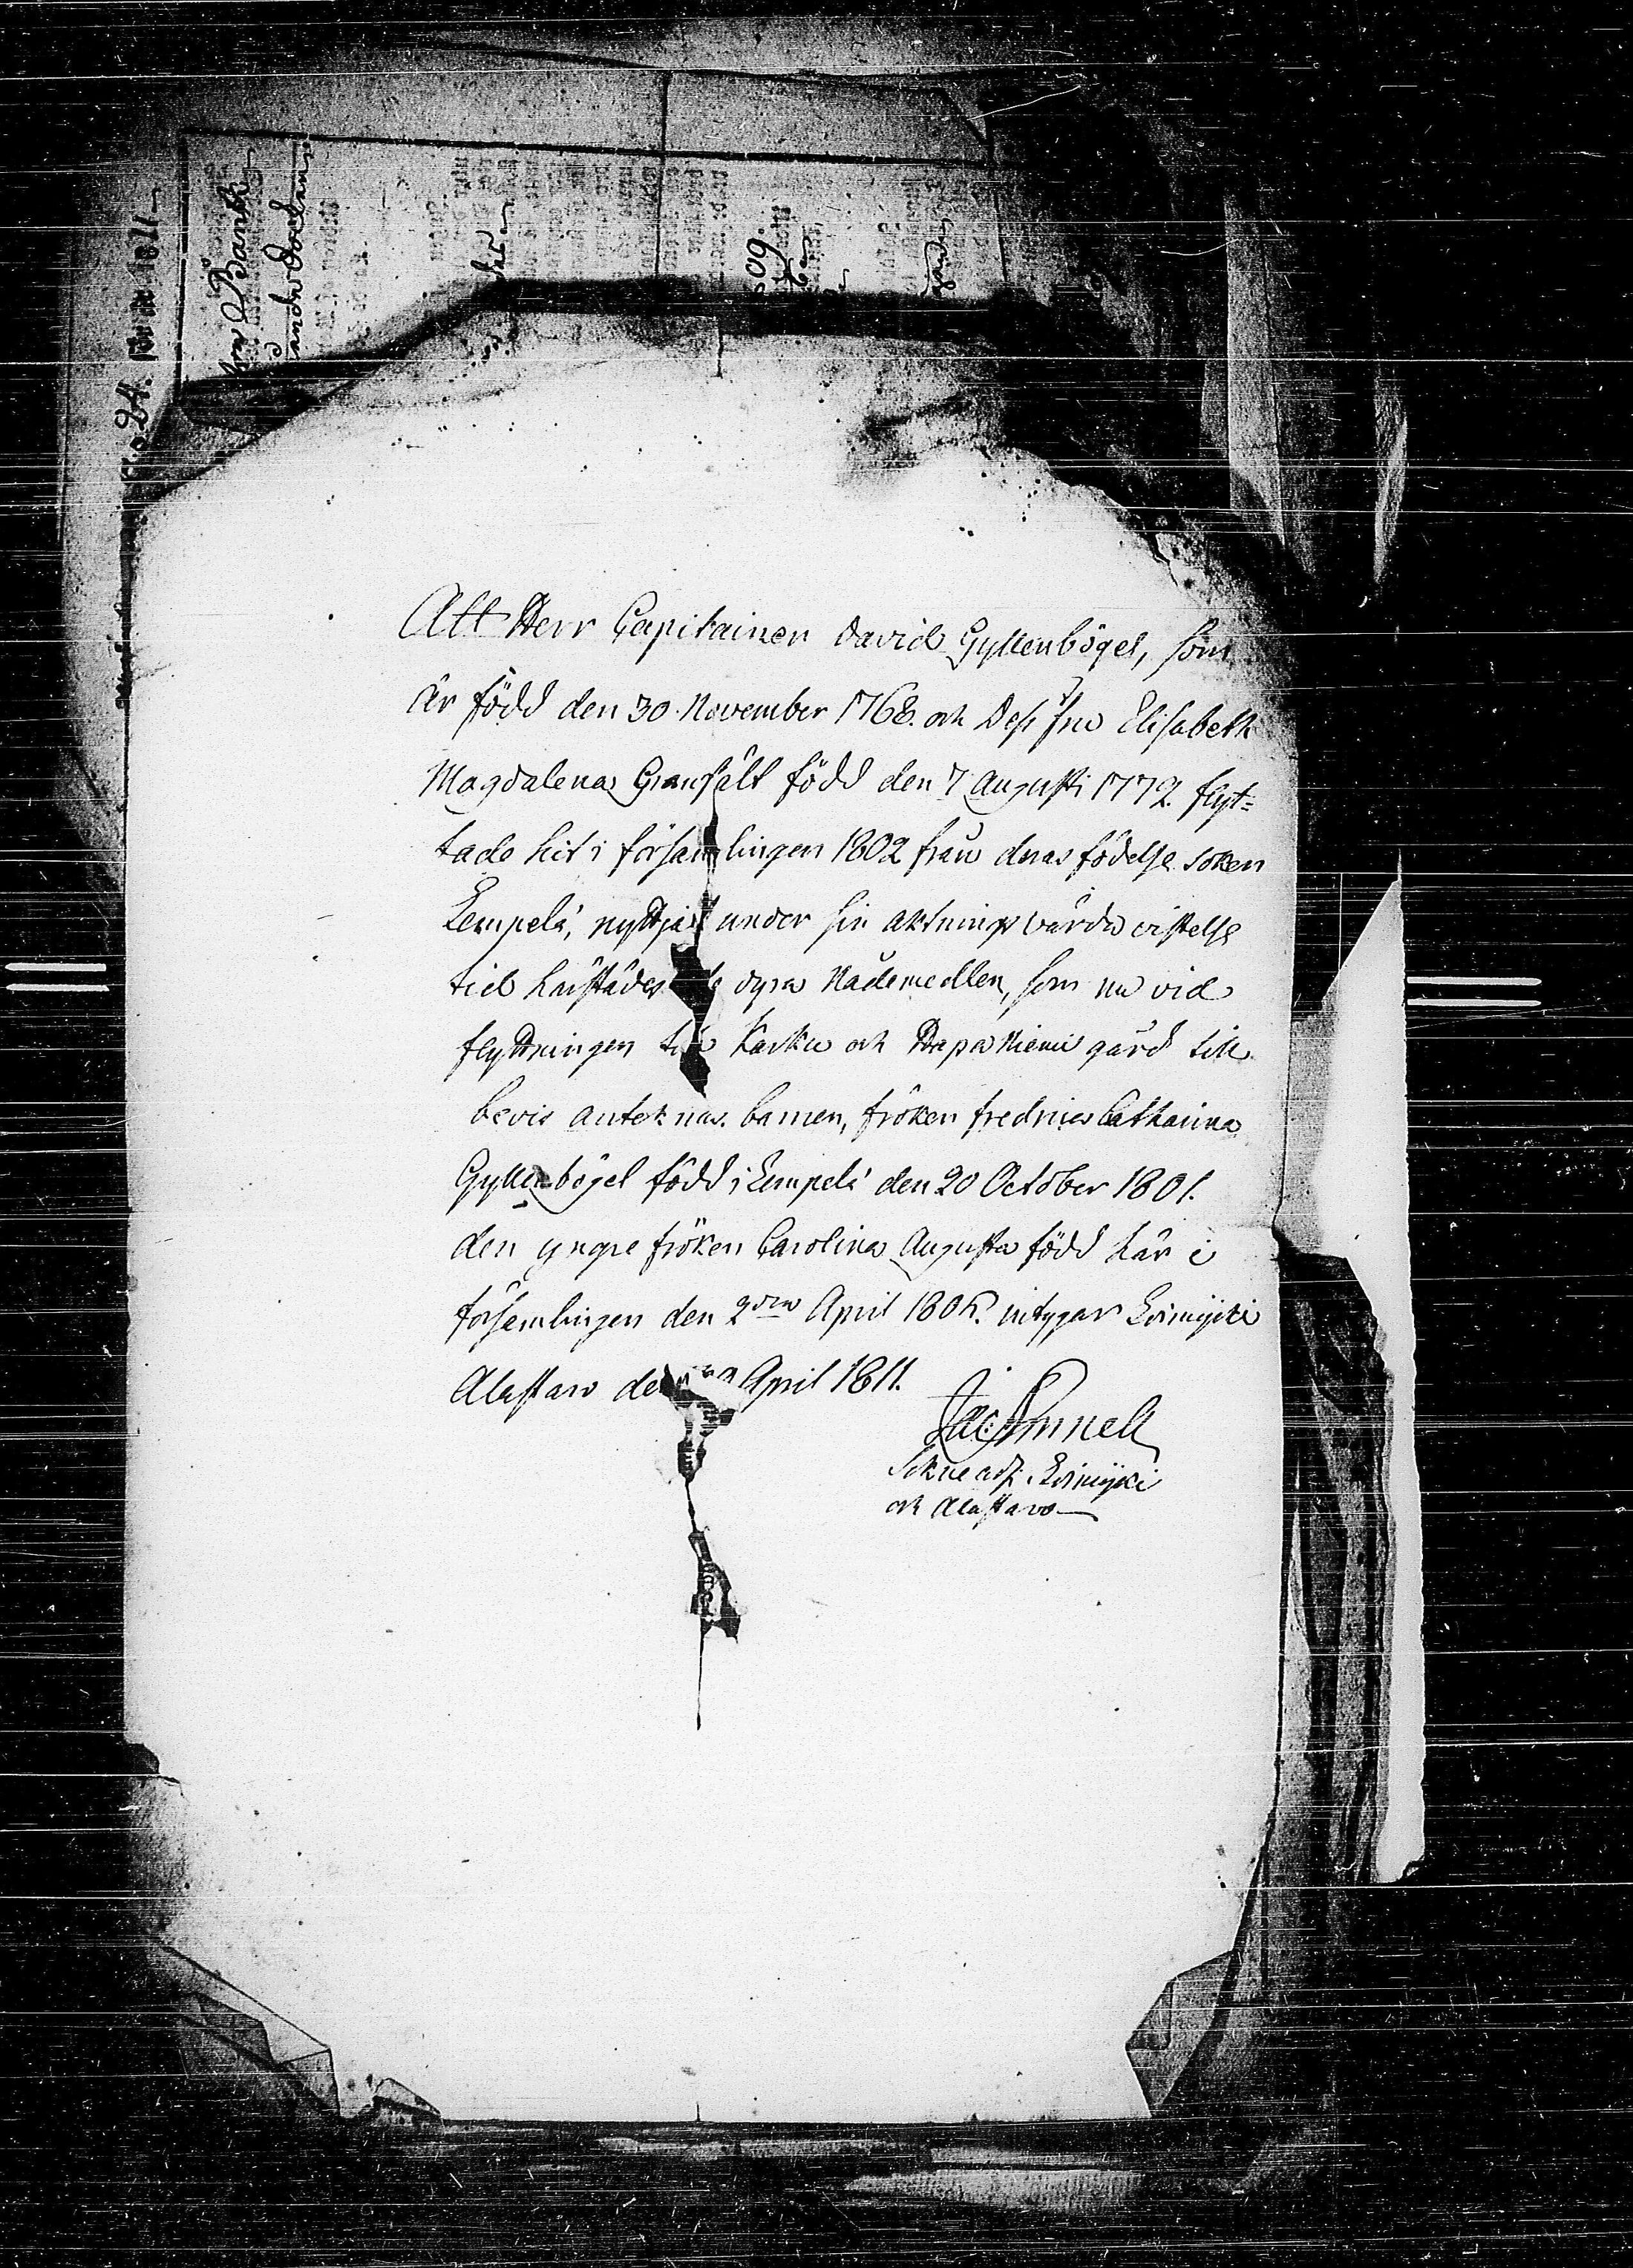 Att Herr Capitainen David Gyllenbögel, som
är född den 30 November 1768. och Dess Fru Elisabeth
Magdalena Granfält född den 7 Augusti 1772. flyt=
tade hit i församlingen 1802 från deras födelse soken
Lempelä, nyttjat under sin aktnings värda vistelse
tid härstädes de dyra Nådemedlen, som nu vid
flyttningen til Karku och Haapaniemi gård till
bevis anteknas. barnen, fröken Fredrica Catharina
Gyllenbögel född i Lempelä den 20 October 1801.
den yngre fröken Carolina Augusta född här i
församlingen den 2dra April 1805. intygar Loimijoki
Alastaro den April 1811.
Jac: Finnell
Sokne adj. i Loimijoki
och Alastaro